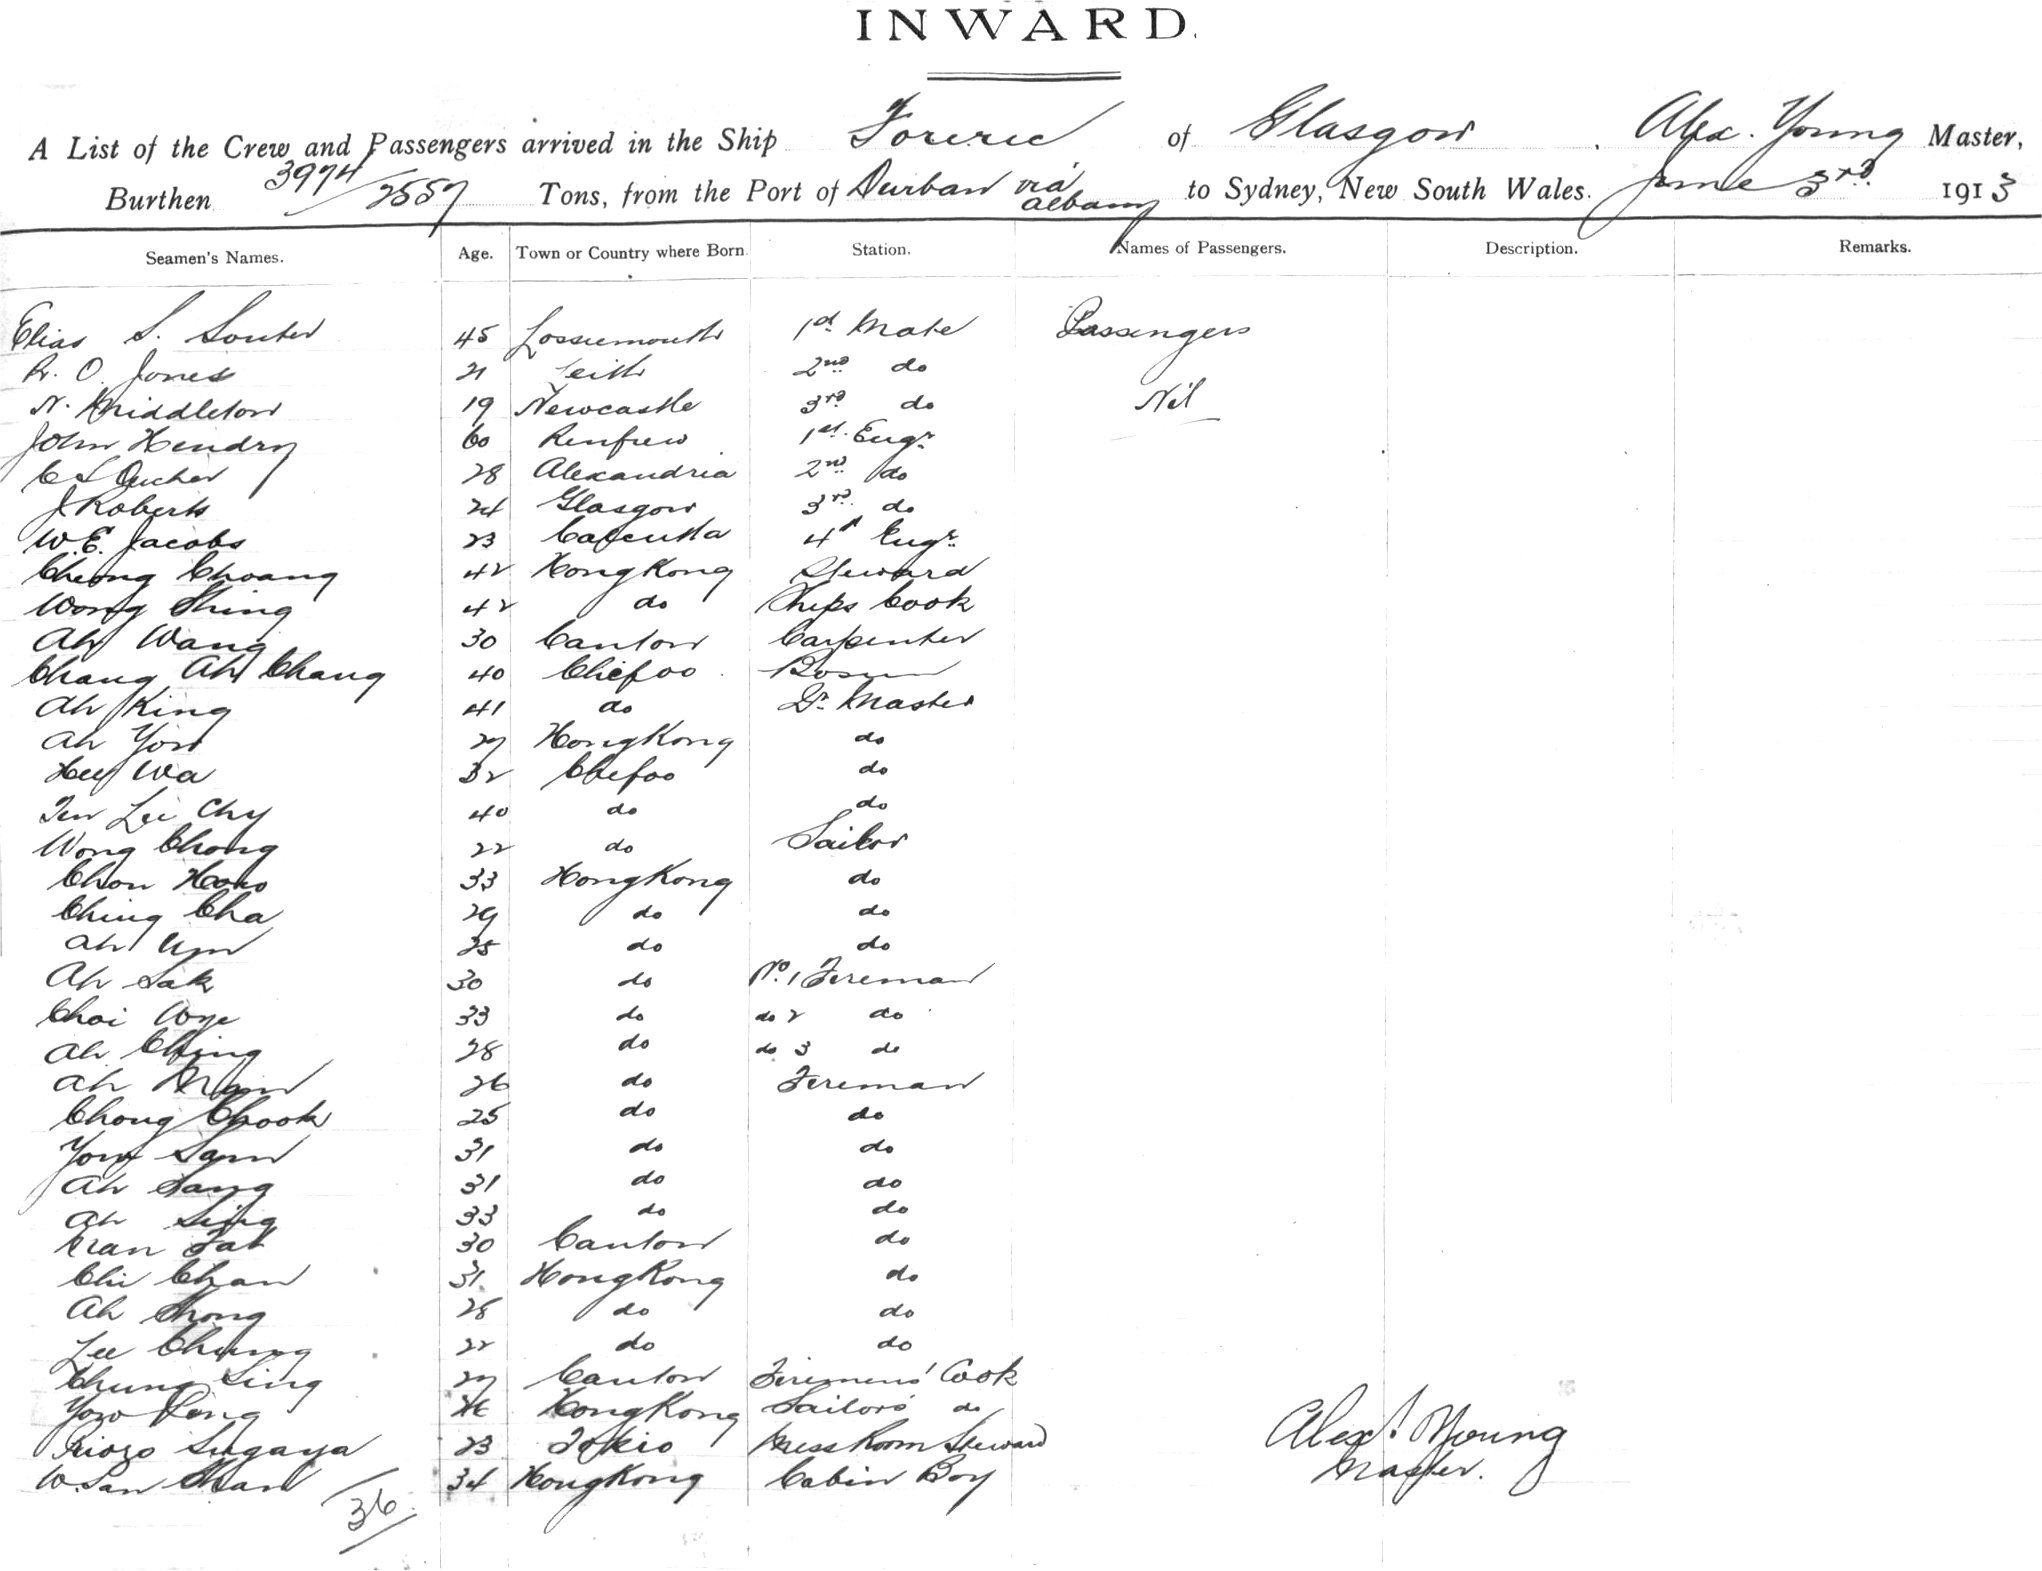 INWARD.
A List of the Crew and Passengers arrived in the Ship Toreric of Glasgow, Alex. Young Master,
Burthen 3974/2557 Tons, from the Port of Durban via Albany to Sydney, New South Wales. June 3rd 1913
Seamen's Names. Age. Town or Country where Born. Station. Names of Passengers. Description. Remarks.
Elias S. Souter 45 Lossiemouth 1st Mate Passengers
R. O. Jones 21 Leith 2nd do
N. Middleton 19 Newcastle 3rd do Nil
John Hendry 60 Renfrew 1st Engr
C S 28 Alexandria 2nd do
J Roberts 24 Glasgow 3rd do
W. E. Jacobs 23 Calcutta 4th Engr
Cheong Choang 42 Hong Kong Steward
Wong Shing 42 do Ships Cook
Ah Wang 30 Canton Carpenter
Chang Ah Chang 40 Chefoo Bosun
Ah King 41 do Qr Master
Ah Yow 27 Hong Kong do
Hey Wa 32 Chefoo do
Lee Chy 40 do do
Wong Chong 22 do Sailor
Chon 33 Hong Kong do
Ching Cha 29 do do
Ah 25 do do
Ah Sak 30 do No. 1 Fireman
Choi 33 do do 2 do
Ah Ching 28 do do 3 do
Ah 26 do Fireman
Chong Chook 25 do do
Yow Sam 31 do do
Ah Sang 31 do do
Ah Sing 33 do do
30 Canton do
Chi Chan 31 Hong Kong do
Ah Shong 28 do do
Lee Chung 22 do do
Chung Sing 27 Canton Firemens' Cook
Hong Kong Sailors' do
Sugaya 23 Tokio Mess Room Steward
W. San Shan 34 Hong Kong Cabin Boy
36
Alexr. Young
Master.